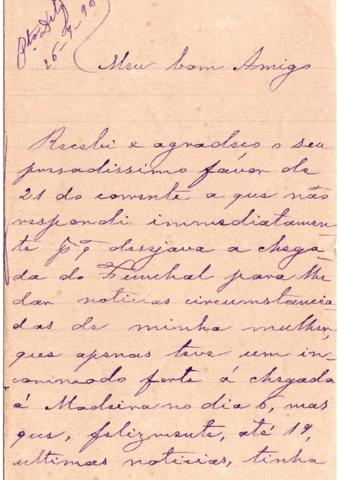 Pta Delg
26-7-90
Meu bom Amigo
Recebi e agradeco o seu
presadissimo favor de
21 do corrente a que não
respondi immediatamen
te pq desejava a chega
da do Funchal para lhe
dar noticias circumstancia
das de minha mulher,
que apenas teve um in
commodo forte á chegada
á Madeira no dia 6, mas
que, felizmente, até 19,
ultimas noticias, tinha